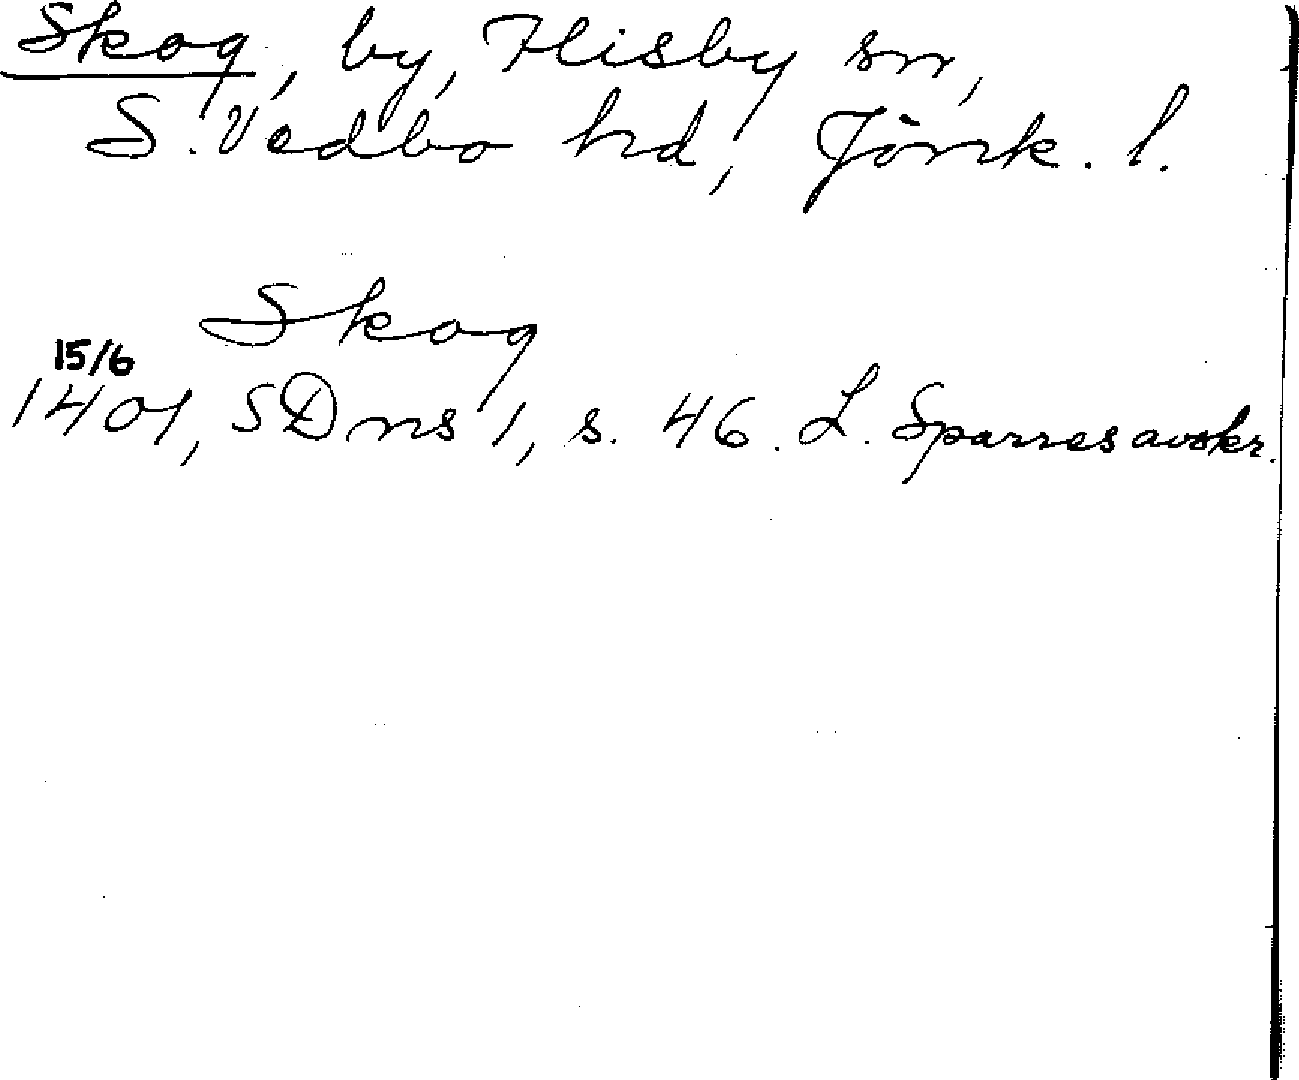 Skog, by, Flisby sn,
S. Vedbo hd, Jönk. l.
Skog
15/6
1401, SDns 1, s. 46. L. Sparres avskr.